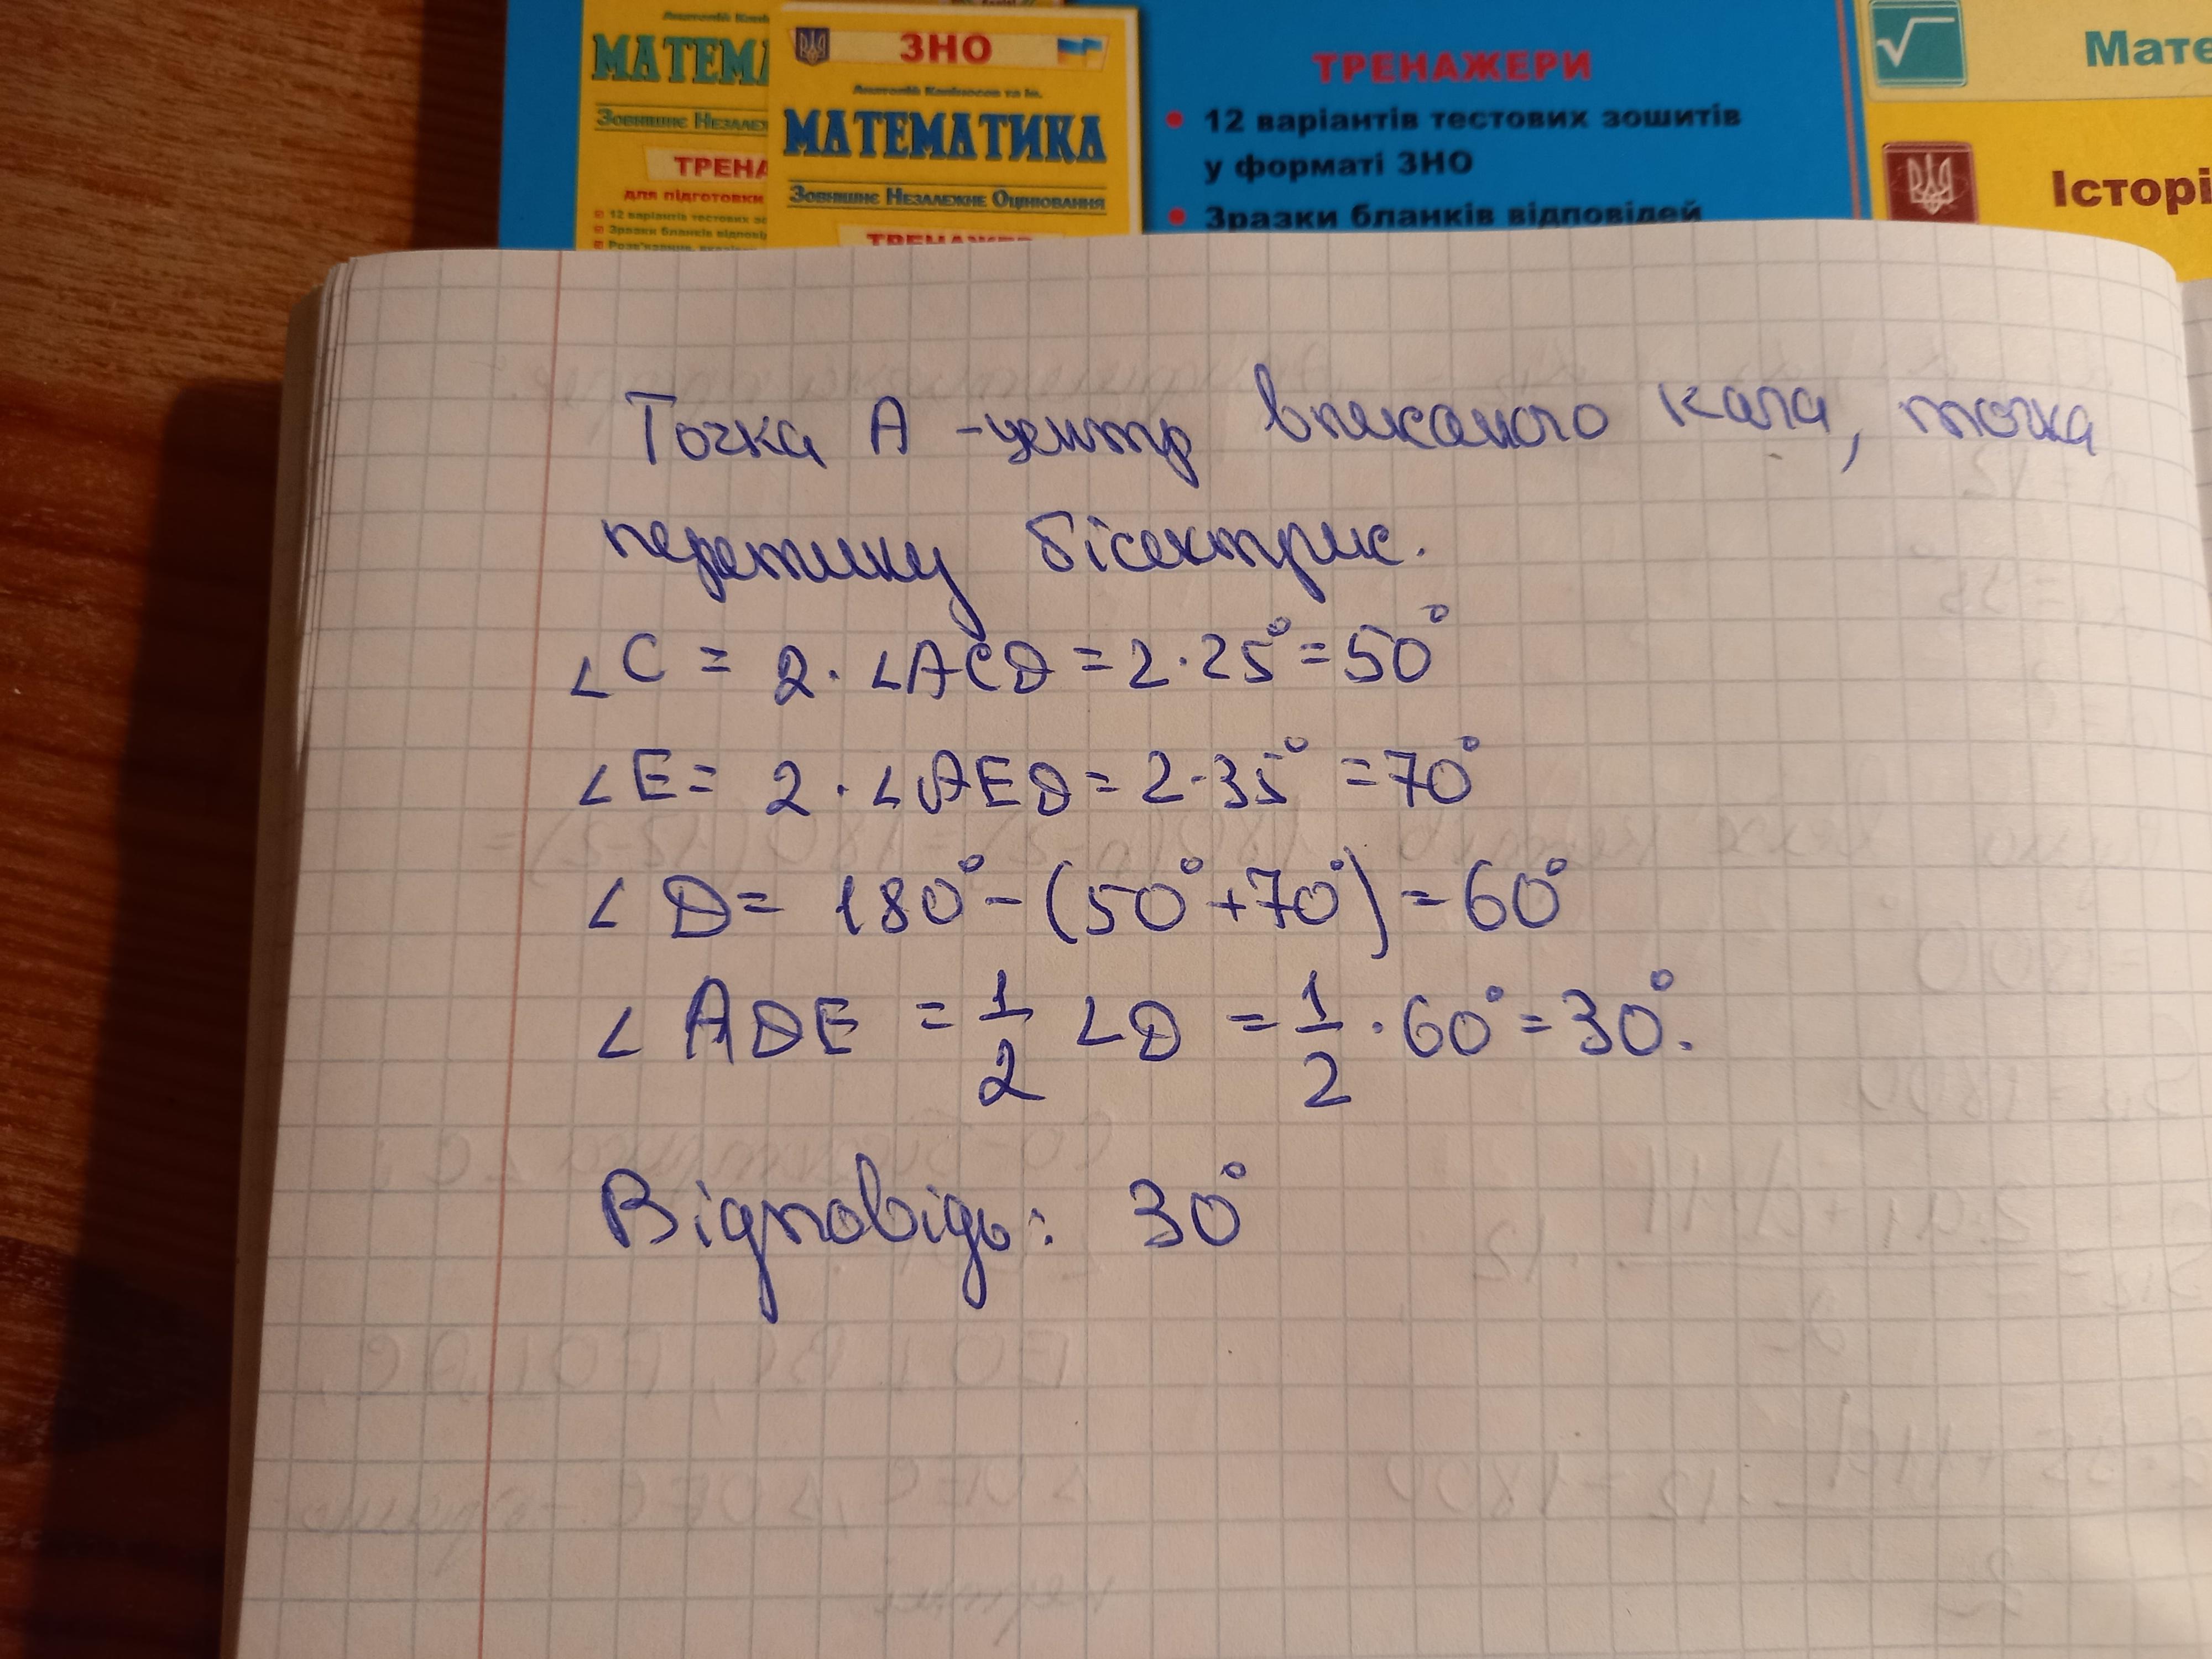 Анатолій
МАТЕМА
Зовнішнє Незалеж
ТРЕНА
для підготовки
12 варіантів тестових зо
Зразки бланків відпові
ЗНО
Анатолій Капіносов та ін.
МАТЕМАТИКА
Зовнішнє Незалежне Оцінювання
ТРЕНАЖЕР
ТРЕНАЖЕРИ
• 12 варіантів тестових зошитів
у форматі ЗНО
• Зразки бланків відповідей
√ Мате
Історі
Точка A - центр вписаного кола, точка
перетину бісектрис.
∠C = 2·∠ACD = 2·25° = 50°
∠E = 2·∠AED = 2·35° = 70°
∠D = 180° - (50° + 70°) = 60°
∠ADE = 1/2 ∠D = 1/2 · 60° = 30°.
Відповідь: 30°